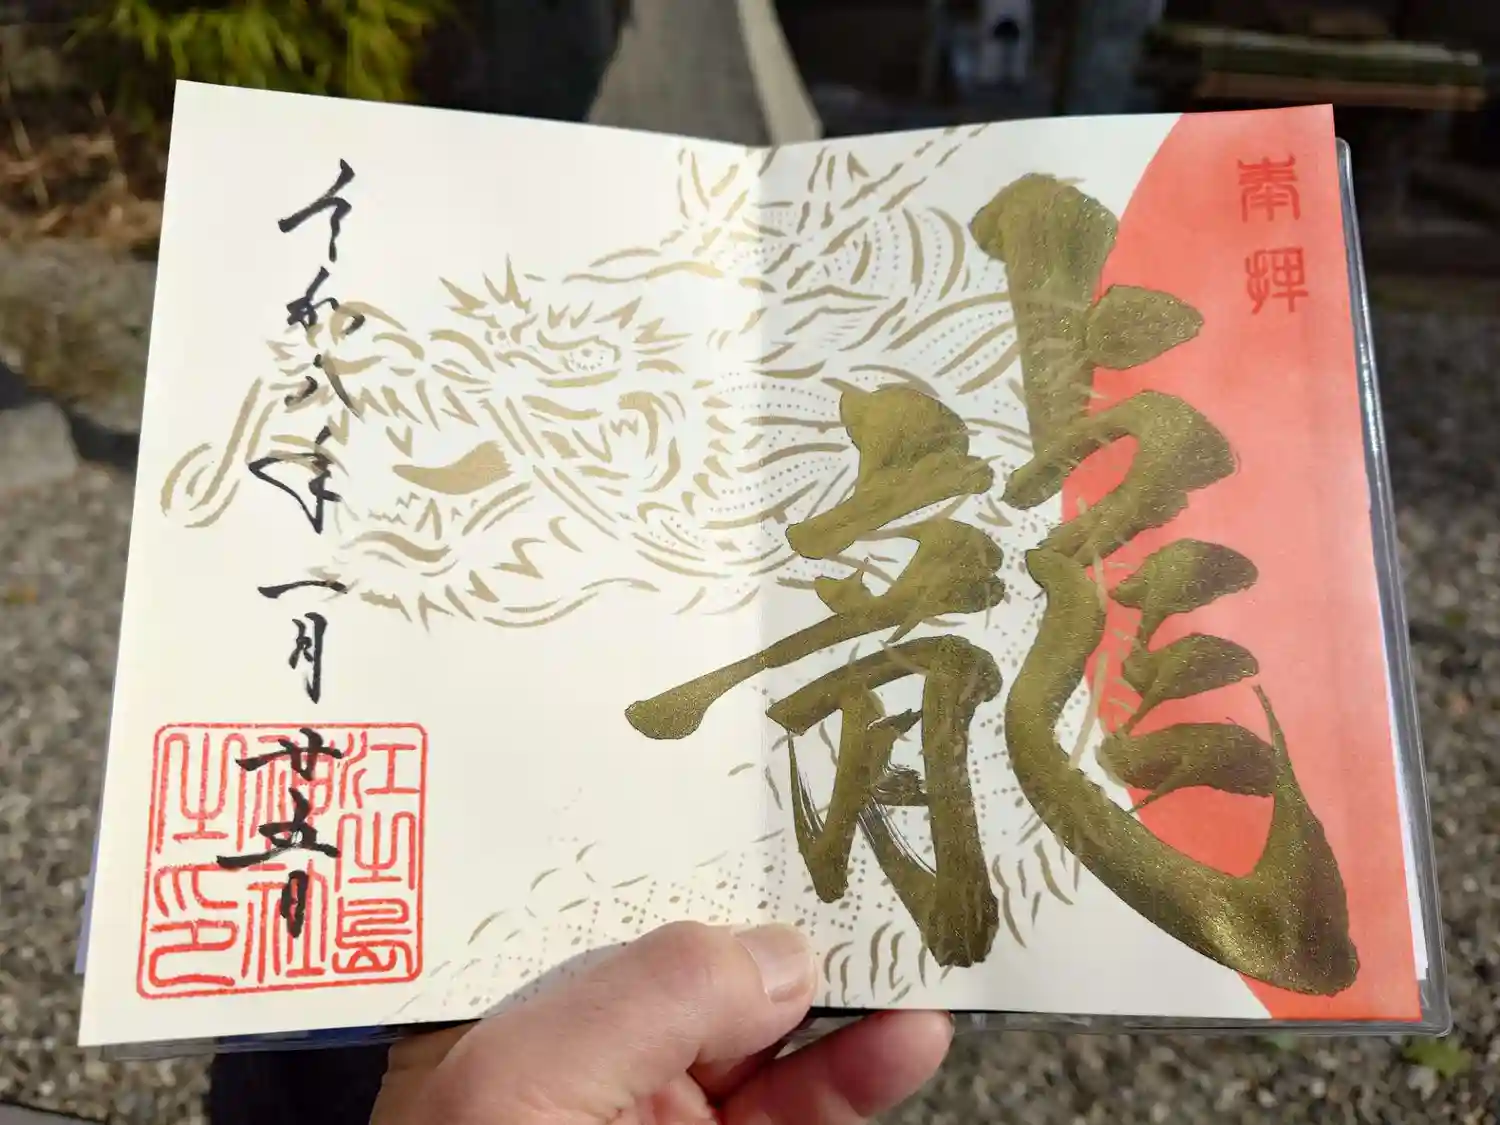 奉拝
龍
令和八年一月廿五日
江之島
神社
之印